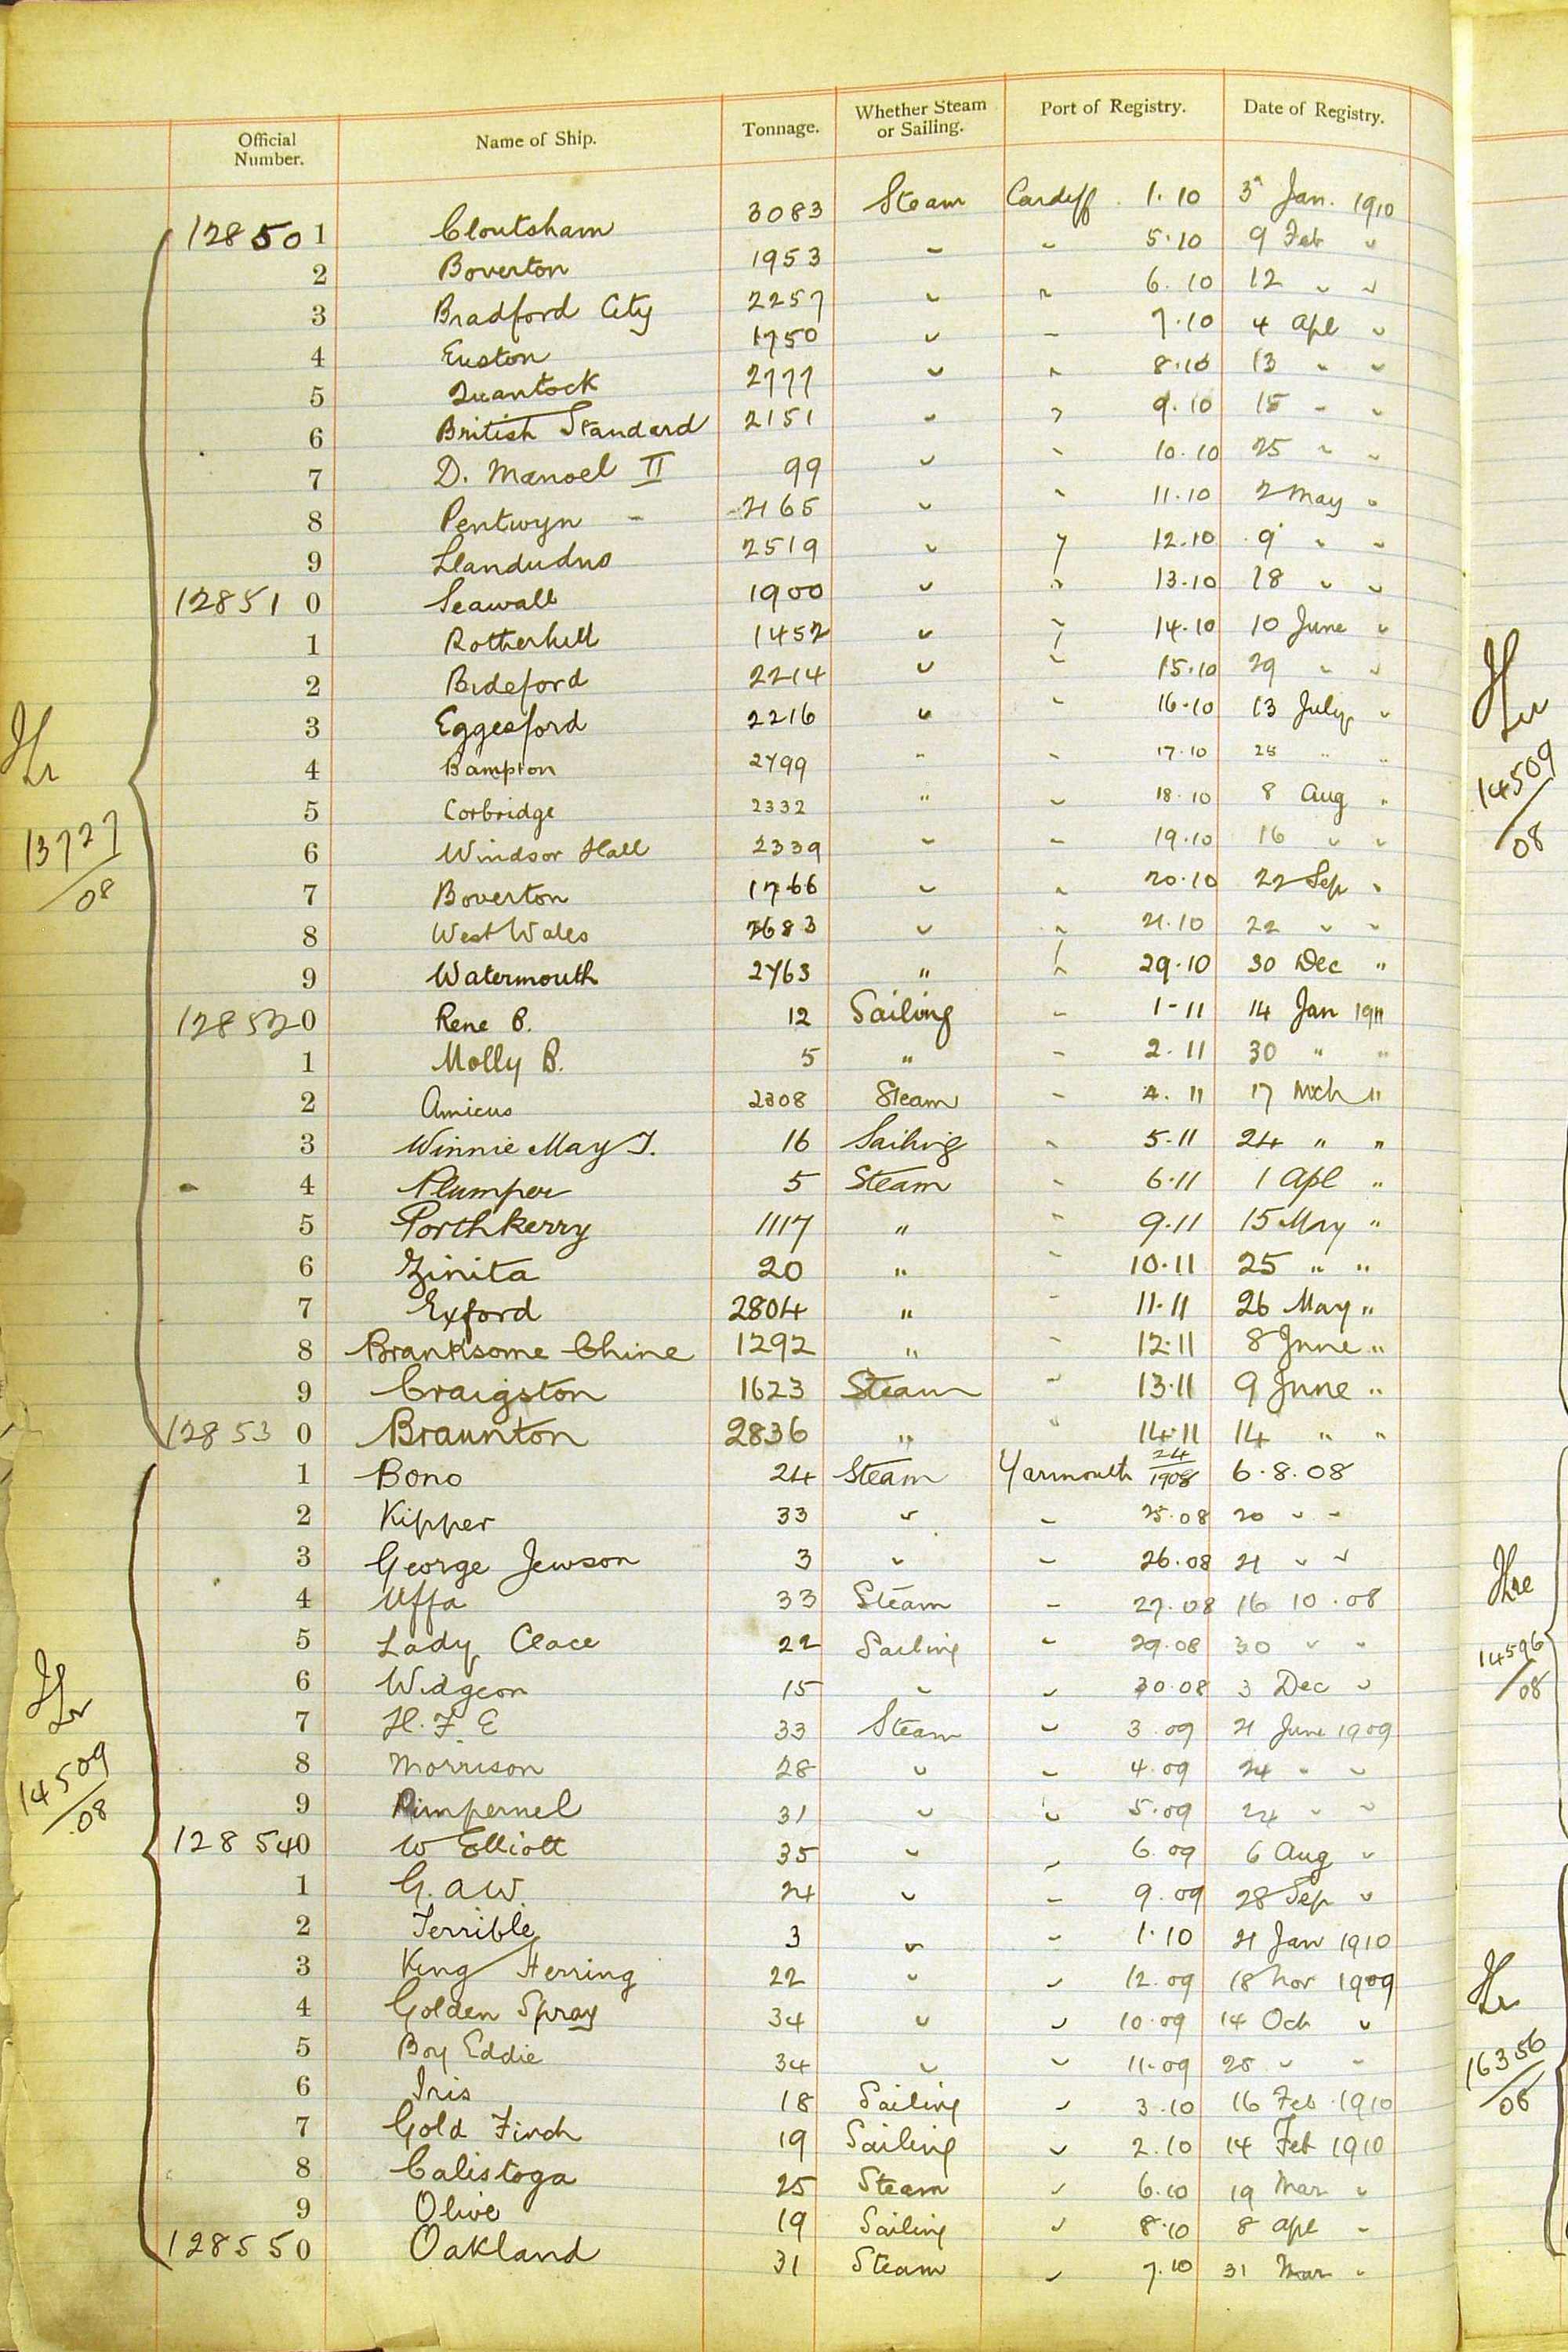 Official Number. Name of Ship. Tonnage. Whether Steam or Sailing. Port of Registry. Date of Registry.
128501 Cloutsham 3083 Steam Cardiff 1.10 3 Jan. 1910
2 Boverton 1953 " " 5.10 9 Feb "
3 Bradford City 2257 " " 6.10 12 " "
4 Euston 1750 " " 7.10 4 Apl "
5 Quantock 2777 " " 8.10 13 " "
6 British Standard 2151 " " 9.10 15 " "
7 D. Manoel II 99 " " 10.10 25 " "
8 Pentwyn 2165 " " 11.10 2 May "
9 Llandudno 2519 " " 12.10 9 " "
128510 Seawall 1900 " " 13.10 18 " "
1 Rotherhill 1452 " " 14.10 10 June "
2 Bideford 2214 " " 15.10 29 " "
3 Eggesford 2216 " " 16.10 13 July "
4 Bampton 2799 " " 17.10 25 " "
5 Corbridge 2332 " " 18.10 8 Aug "
6 Windsor Hall 2339 " " 19.10 16 " "
7 Boverton 1766 " " 20.10 22 Sep "
8 West Wales 2683 " " 21.10 22 " "
9 Watermouth 2763 " " 29.10 30 Dec "
128520 Rene B. 12 Sailing " 1-11 14 Jan 1911
1 Molly B. 5 " " 2.11 30 " "
2 Amicus 2308 Steam " 4.11 17 Mch "
3 Winnie May T. 16 Sailing " 5.11 24 " "
4 Plumper 5 Steam " 6.11 1 Apl "
5 Porthkerry 1117 " " 9.11 15 May "
6 Zinita 20 " " 10.11 25 " "
7 Exford 2804 " " 11.11 26 May "
8 Branksome Chine 1292 " " 12.11 8 June "
9 Craigston 1623 Steam " 13.11 9 June "
128530 Braunton 2836 " " 14.11 14 " "
1 Bono 24 Steam Yarmouth 24/1908 6.8.08
2 Kipper 33 " " 25.08 20 " "
3 George Jewson 3 " " 26.08 21 " "
4 Uffa 33 Steam " 27.08 16 10.08
5 Lady Clace 22 Sailing " 29.08 30 " "
6 Widgeon 15 " " 30.08 3 Dec "
7 H. F. E 33 Steam " 3.09 21 June 1909
8 Morrison 28 " " 4.09 24 " "
9 Pimpernel 31 " " 5.09 24 " "
128540 W Elliott 35 " " 6.09 6 Aug "
1 G. A W. 24 " " 9.09 28 Sep "
2 Terrible 3 " " 1.10 21 Jan 1910
3 King Herring 22 " " 12.09 18 Nov 1909
4 Golden Spray 34 " " 10.09 14 Oct "
5 Boy Eddie 34 " " 11.09 25 " "
6 Iris 18 Sailing " 3.10 16 Feb 1910
7 Gold Finch 19 Sailing " 2.10 14 Feb 1910
8 Calistoga 25 Steam " 6.10 19 Mar "
9 Olive 19 Sailing " 8.10 8 Apl "
128550 Oakland 31 Steam " 7.10 31 Mar "
13727/08
14509/08
14509/08
14596/08
16356/08